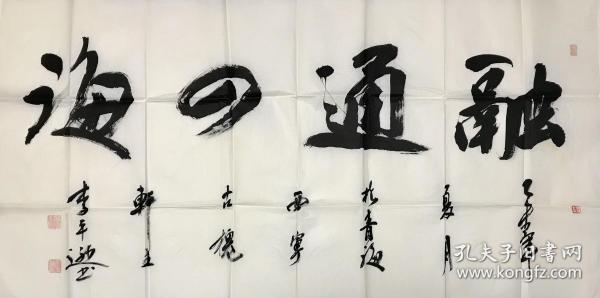 融通四海
乙未年
夏月
於青海
西寧
古槐
軒主
李平书
孔夫子旧书网
www.kongfz.com